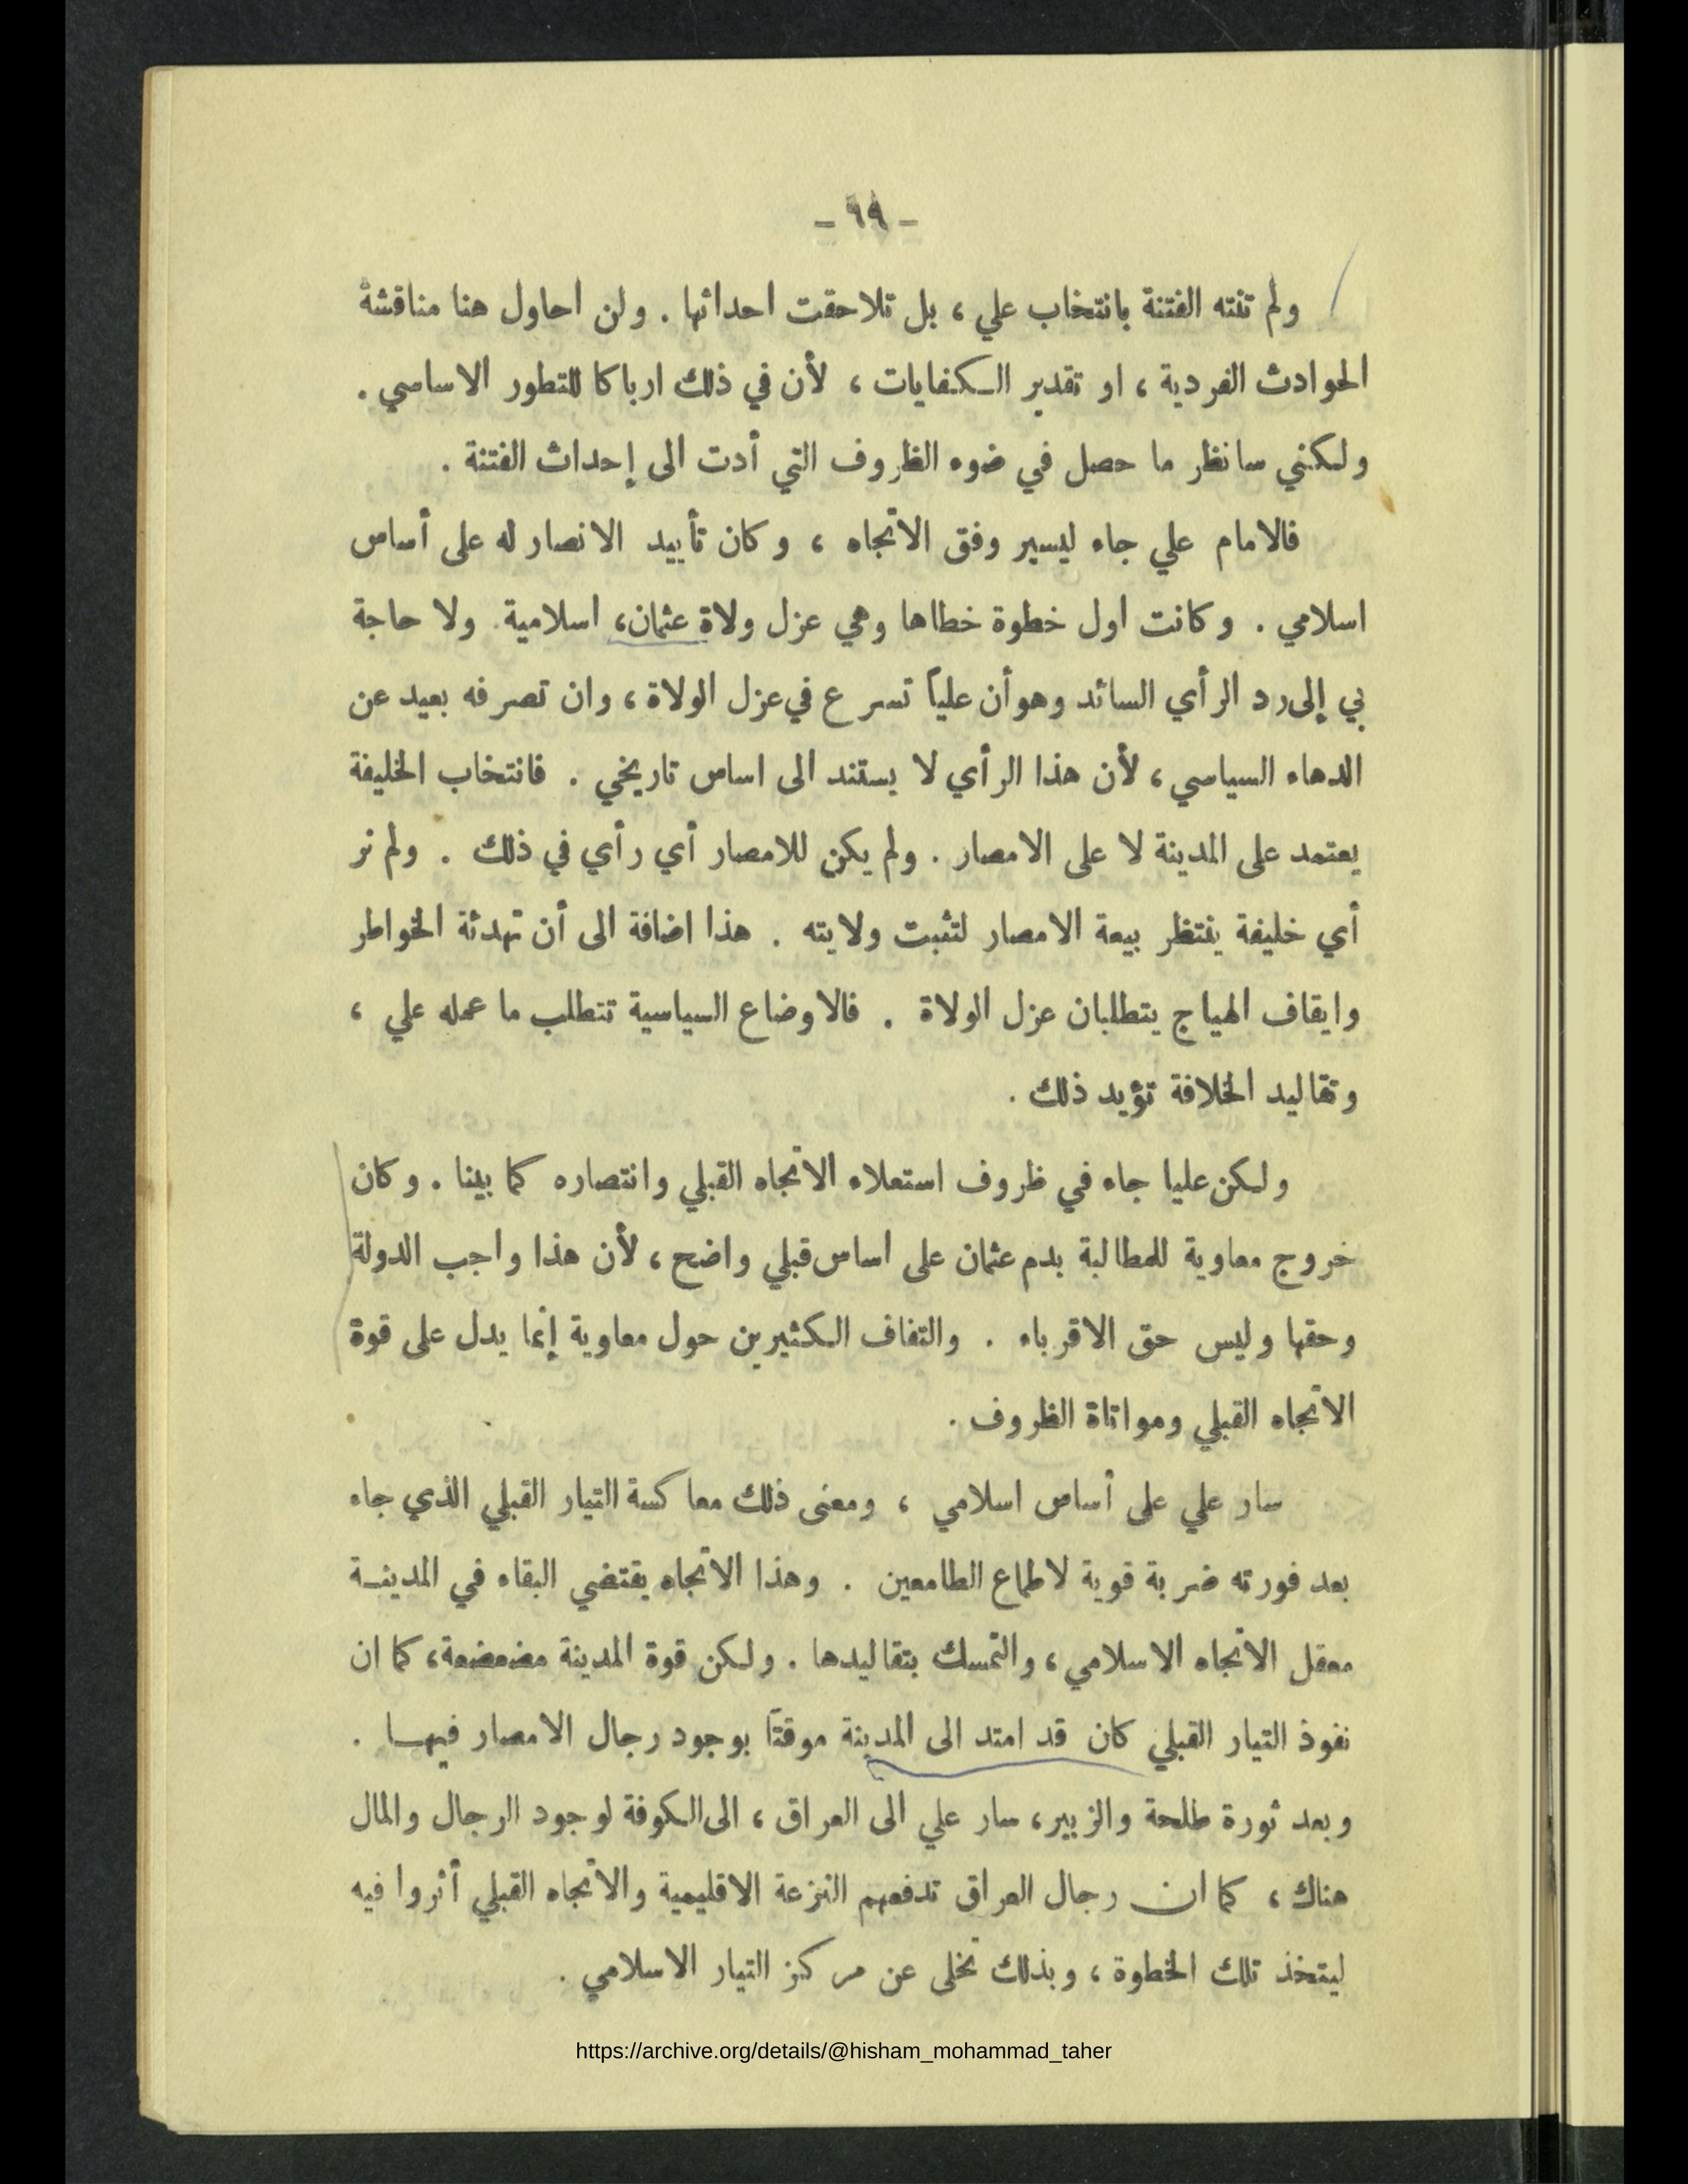 - ٦٩ -
ولم تنته الفتنة بانتخاب علي ، بل تلاحقت احداثها . ولن احاول هنا مناقشة
الحوادث الفردية ، او تقدير الكفايات ، لأن في ذلك ارباكا للتطور الاساسي .
ولكنني سانظر ما حصل في ضوء الظروف التي أدت الى إحداث الفتنة .
فالامام علي جاء ليسير وفق الاتجاه ، وكان تأييد الانصار له على أساس
اسلامي . وكانت اول خطوة خطاها وهي عزل ولاة عثمان، اسلامية . ولا حاجة
بي إلى رد الرأي السائد وهو أن علياً تسرع في عزل الولاة ، وان تصرفه بعيد عن
الدهاء السياسي ، لأن هذا الرأي لا يستند الى اساس تاريخي . فانتخاب الخليفة
يعتمد على المدينة لا على الامصار . ولم يكن للامصار أي رأي في ذلك . ولم نر
أي خليفة ينتظر بيعة الامصار لتثبت ولايته . هذا اضافة الى أن تهدئة الخواطر
وايقاف الهياج يتطلبان عزل الولاة . فالاوضاع السياسية تتطلب ما عمله علي ،
وتقاليد الخلافة تؤيد ذلك .
ولكن عليا جاء في ظروف استعلاء الاتجاه القبلي وانتصاره كما بينا . وكان
خروج معاوية للمطالبة بدم عثمان على اساس قبلي واضح ، لأن هذا واجب الدولة
وحقها وليس حق الاقرباء . والتفاف الكثيرين حول معاوية إنما يدل على قوة
الاتجاه القبلي ومواتاة الظروف .
سار علي على أساس اسلامي ، ومعنى ذلك معاكسة التيار القبلي الذي جاء
بعد فورته ضربة قوية لاطماع الطامعين . وهذا الاتجاه يقتضي البقاء في المدينة
معقل الاتجاه الاسلامي ، والتمسك بتقاليدها . ولكن قوة المدينة مضعضعة، كما ان
نفوذ التيار القبلي كان قد امتد الى المدينة موقتاً بوجود رجال الامصار فيها .
وبعد ثورة طلحة والزبير، سار علي الى العراق ، الى الكوفة لوجود الرجال والمال
هناك ، كما ان رجال العراق تدفعهم النزعة الاقليمية والاتجاه القبلي أثروا فيه
ليتخذ تلك الخطوة ، وبذلك تخلى عن مركز التيار الاسلامي .
https://archive.org/details/@hisham_mohammad_taher